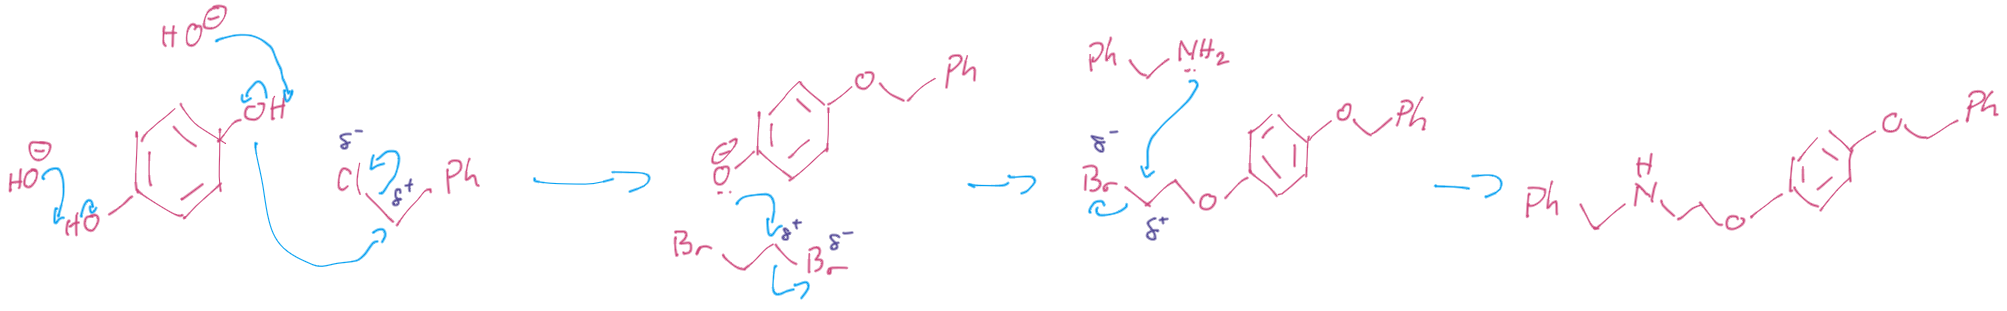 HO⊖
OH
HO⊖
HO
δ-
Cl
δ+
Ph
O
Ph
⊖
O
Br
δ+
δ-
Br
Ph
NH2
δ-
Br
δ+
O
O
Ph
Ph
H
N
O
O
Ph